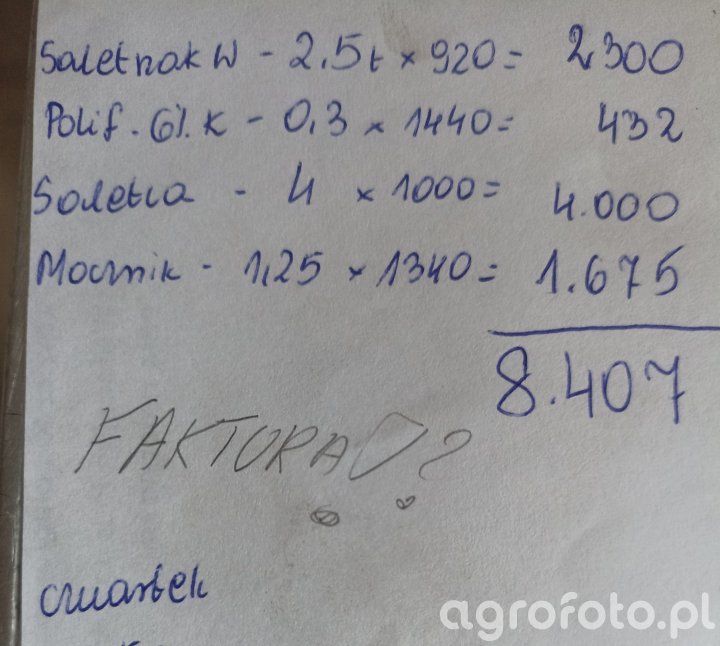 Saletrzak W - 2.5t × 920 = 2300
Polif. 6% K - 0,3 × 1440 = 432
Saletra - 4 × 1000 = 4.000
Mocznik - 1,25 × 1340 = 1.675
8.407
FAKTURA ?
czwartek
agrofoto.pl